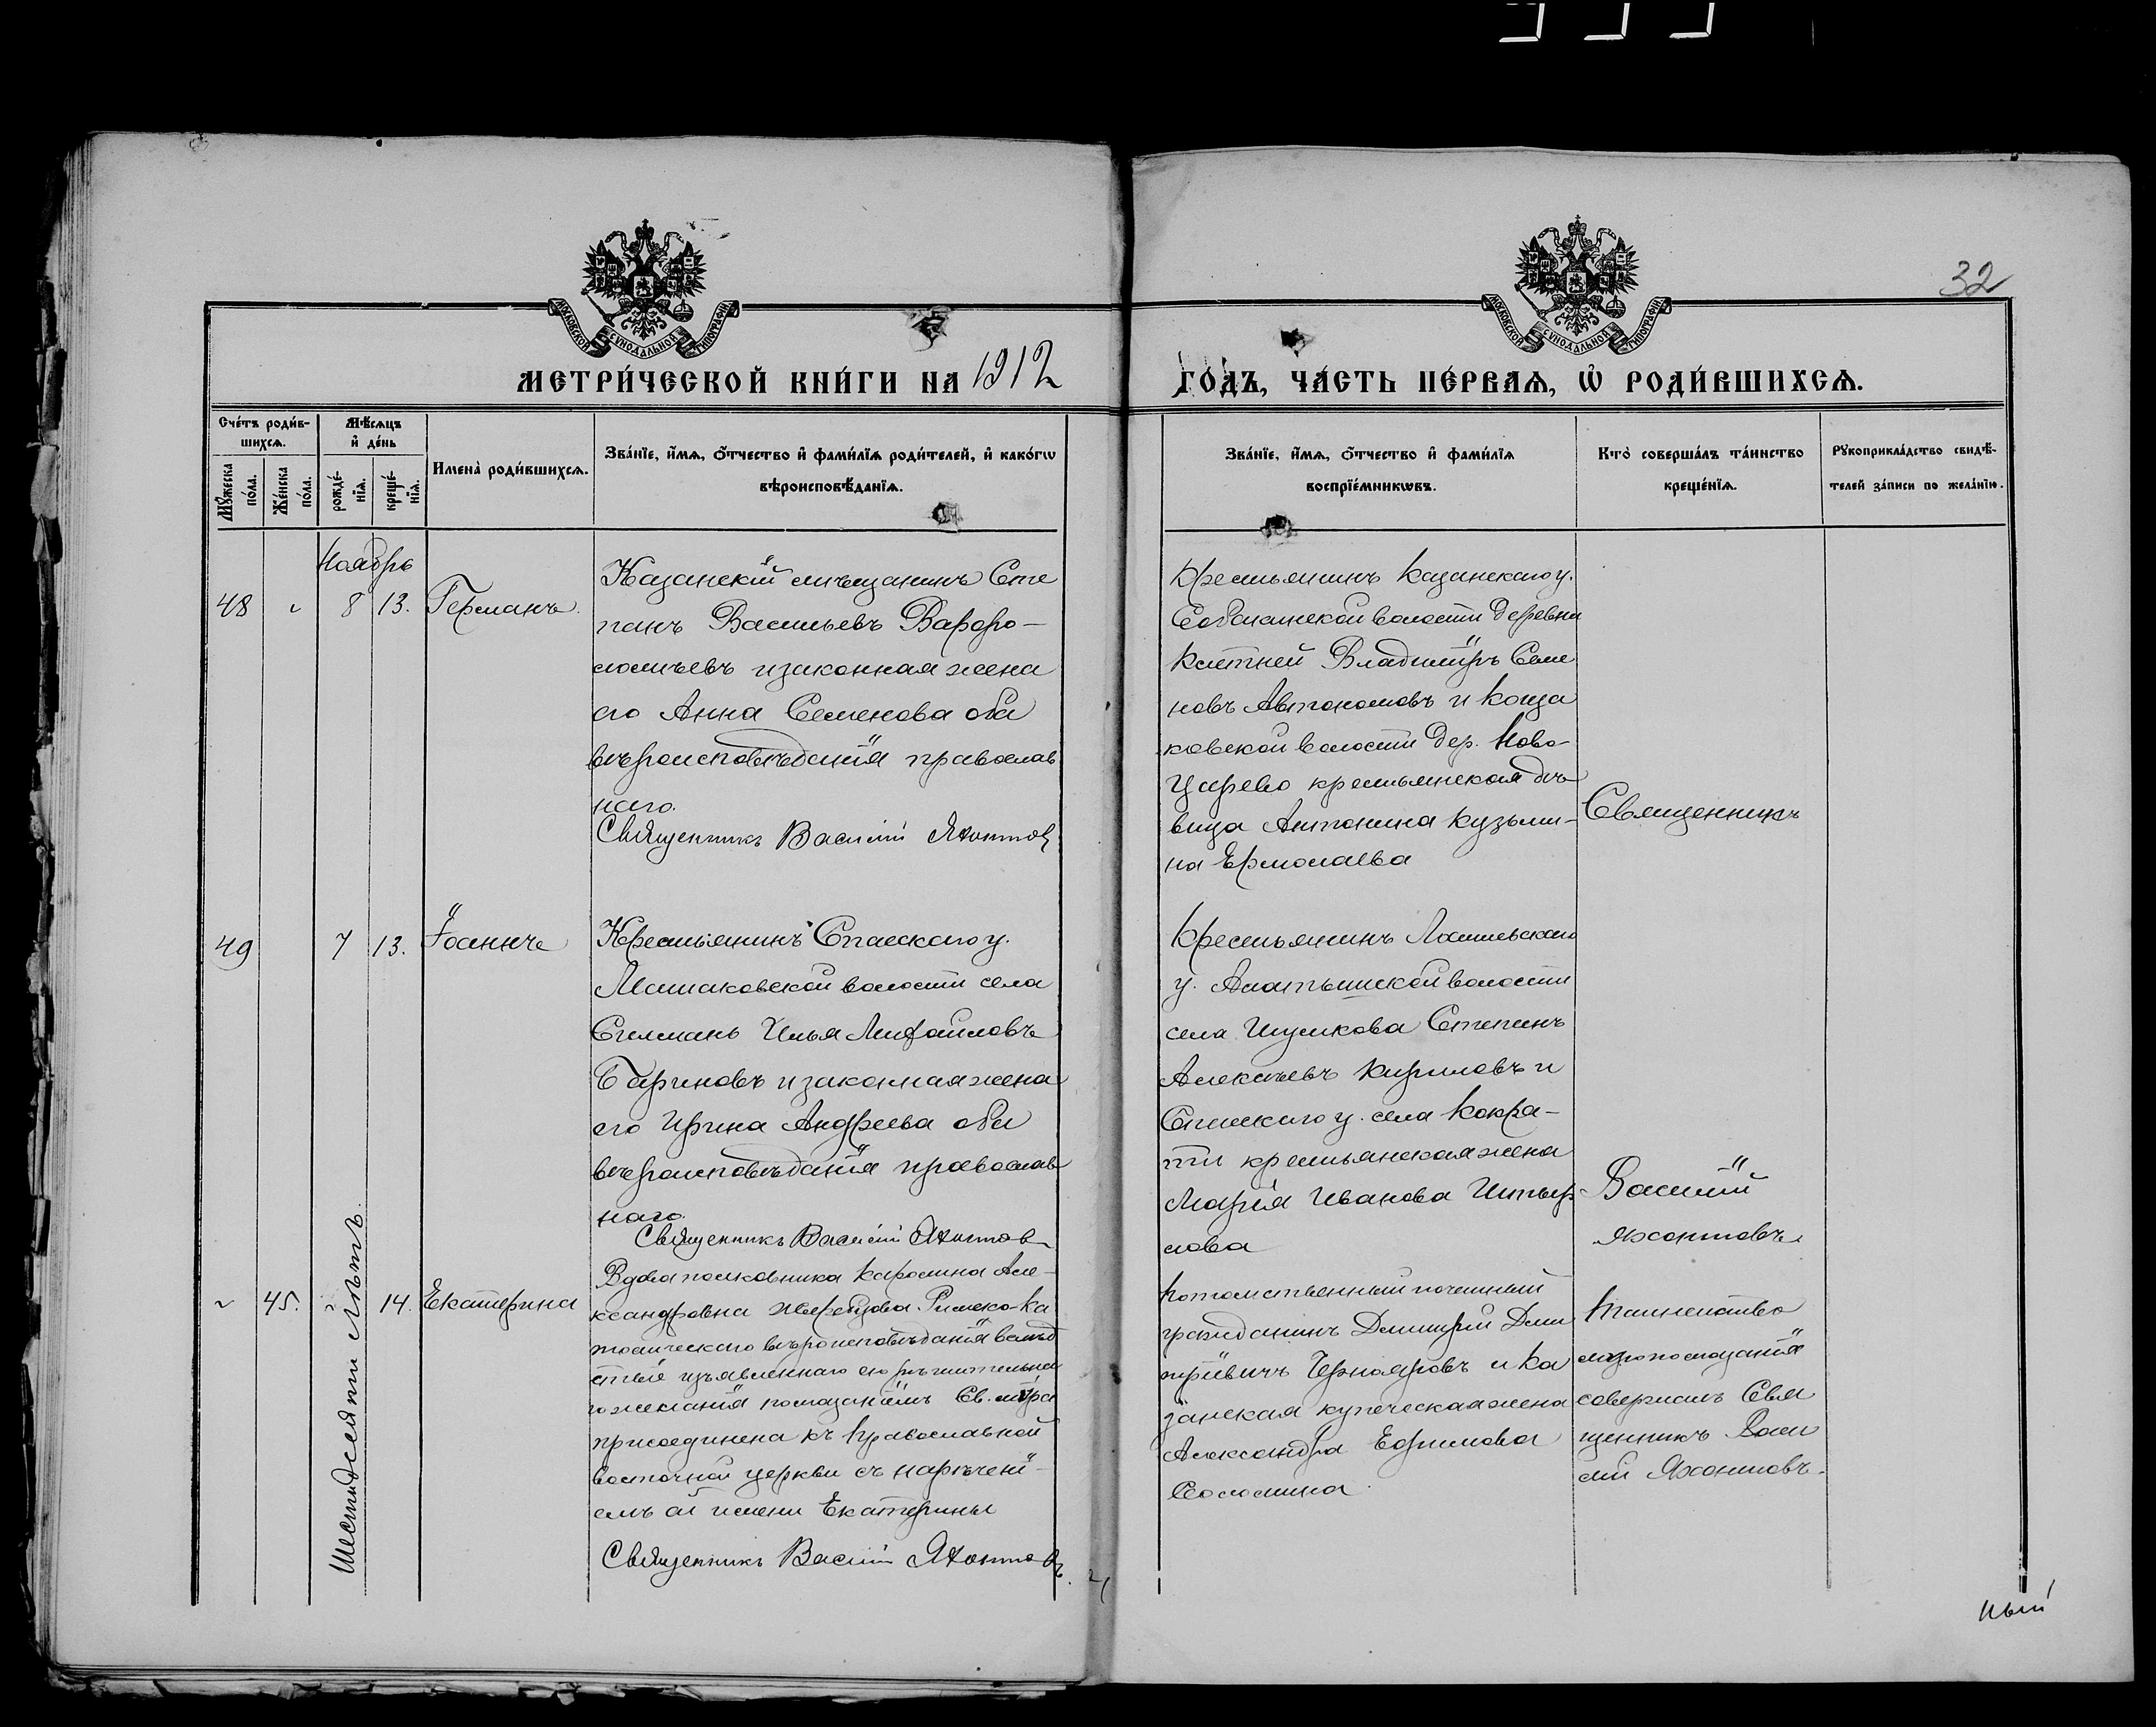 32
МОСКОВСКОЙ СѴНОДАЛЬНОЙ ТИПОГРАФІИ
МОСКОВСКОЙ СѴНОДАЛЬНОЙ ТИПОГРАФІИ
МЕТРИ́ЧЕСКОЙ КНИ́ГИ НА 1912
ГО́ДЪ, ЧА́СТЬ ПЕ́РВАѦ, Ѡ҆ РОДИ́ВШИХСѦ.
Сче́тъ роди́в-
шихсѧ.
Мꙋ́жеска
по́ла.
Же́нска
по́ла.
Мѣ́сѧцъ
и҆ де́нь
рожде́-
нїѧ.
креще́-
нїѧ.
Имена̀ роди́вшихсѧ.
Зва́нїе, и҆́мѧ, ѻ҆́тчество и҆ фами́лїѧ роди́телей, и҆ како́гѡ
вѣроисповѣ́данїѧ.
Зва́нїе, и҆́мѧ, ѻ҆́тчество и҆ фами́лїѧ
воспрїе́мникѡвъ.
Кто̀ соверша́лъ та́инство
креще́нїѧ.
Рꙋкоприкла́дство свидѣ́-
телей за́писи по жела́нїю.
Ноябрь
48 " 8 13. Германъ
Казанскій мѣщанинъ Сте
панъ Васильевъ Варфоро-
ломѣевъ и законная жена
его Анна Семенова оба
вѣроисповѣданія православ
наго.
Священникъ Василій Яхонтовъ
Крестьянинъ Казанскаго у.
Собакинской волости деревни
Клетней Владиміръ Семе
новъ Автономовъ и Коща
ковской волости дер. Ново-
Царево крестьянская дѣ
вица Антонина Кузьми-
на Ермолаева
Священникъ
49 7 13. Іоаннъ
Крестьянинъ Спасскаго у.
волости села
Илья Михайловъ
Бариновъ и законная жена
его Ирина Андреева оба
вѣроисповѣданія православ
наго.
Священникъ Василій Яхонтовъ
Крестьянинъ Лаишевскаго
у. волости
села Шумкова Степанъ
Алексѣевъ Кириловъ и
Спасскаго у. села Кокря-
ти крестьянская жена
Марія Иванова
лова
Василій
Яхонтовъ
" 45. " 14. Екатерина
Шестидесяти лѣтъ.
Вдова полковника Каролина Але-
ксандровна Римско-ка
толическаго вѣроисповѣданія вслѣд
ствіе изъявленнаго ею рѣшительна
го желанія помазаніемъ Св. мѵра
присоединена къ Православной
восточной церкви съ нареченi-
емъ ей имени Екатерины
Священникъ Василій Яхонтовъ
Потомственный почетный
гражданинъ Димитрій Дми
тріевичъ Чернояровъ и Ка
занская купеческая жена
Александра Ефимова
Соломина.
Таинство
мѵропомазанія
совершилъ Свя
щенникъ Васи
лій Яхонтовъ.
ный